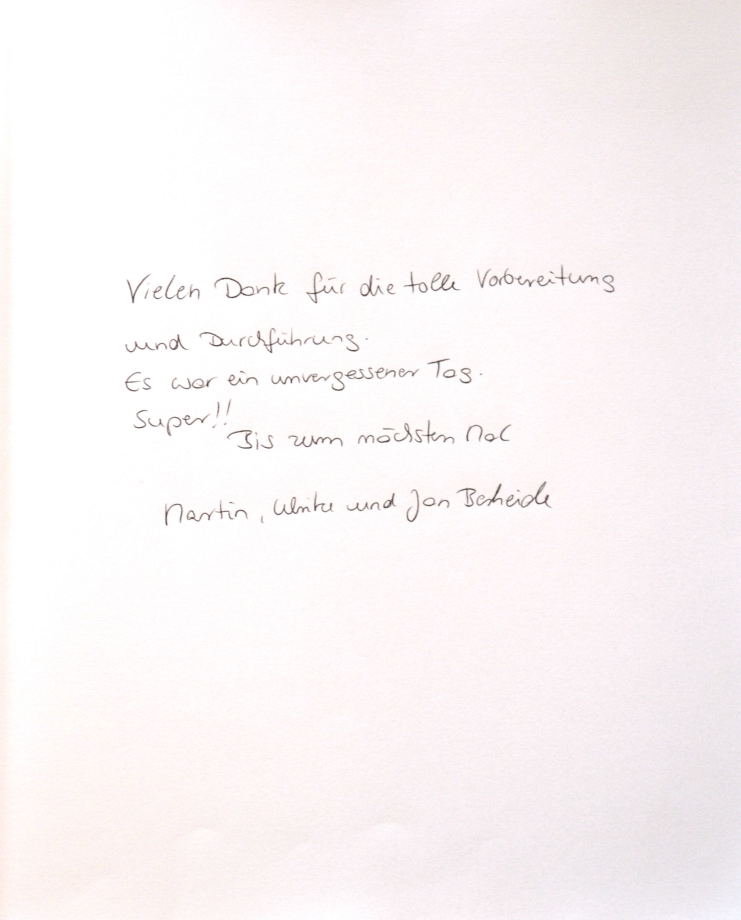 Vielen Dank für die tolle Vorbereitung
und Durchführung.
Es war ein unvergessener Tag.
Super!!
Bis zum nächsten Mal
Martin, Ulrike und Jan